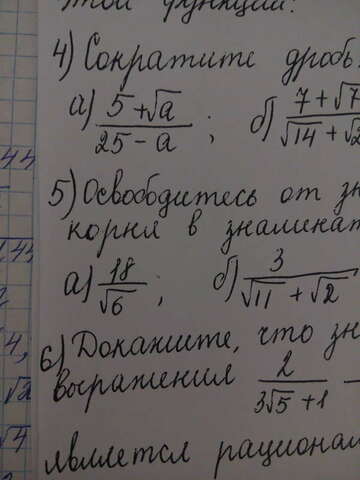 этой функции:
4) Сократите дробь:
а) (5+√a)/(25-a) ; б) (7+√7)/(√14+√2
5) Освободитесь от зн
корня в знаменат
а) 18/√6 ; б) 3/(√11+√2)
6) Докажите, что зн
выражения 2/(3√5+1) -
является рационал